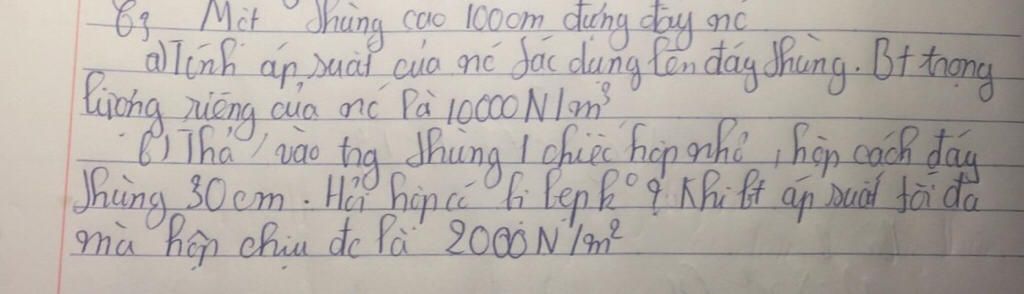 B3 Một thùng cao 100cm đựng đầy nc
a) Tính áp suất của nc tác dụng lên đáy thùng. Bt trọng
lượng riêng của nc là 10000N/m³
b) Thả vào tng thùng 1 chiếc hộp nhỏ, hộp cách đáy
thùng 30cm. Hỏi hộp có bị bẹp k° ? Khi bt áp suất tối đa
mà hộp chịu đc là 2000N/m²